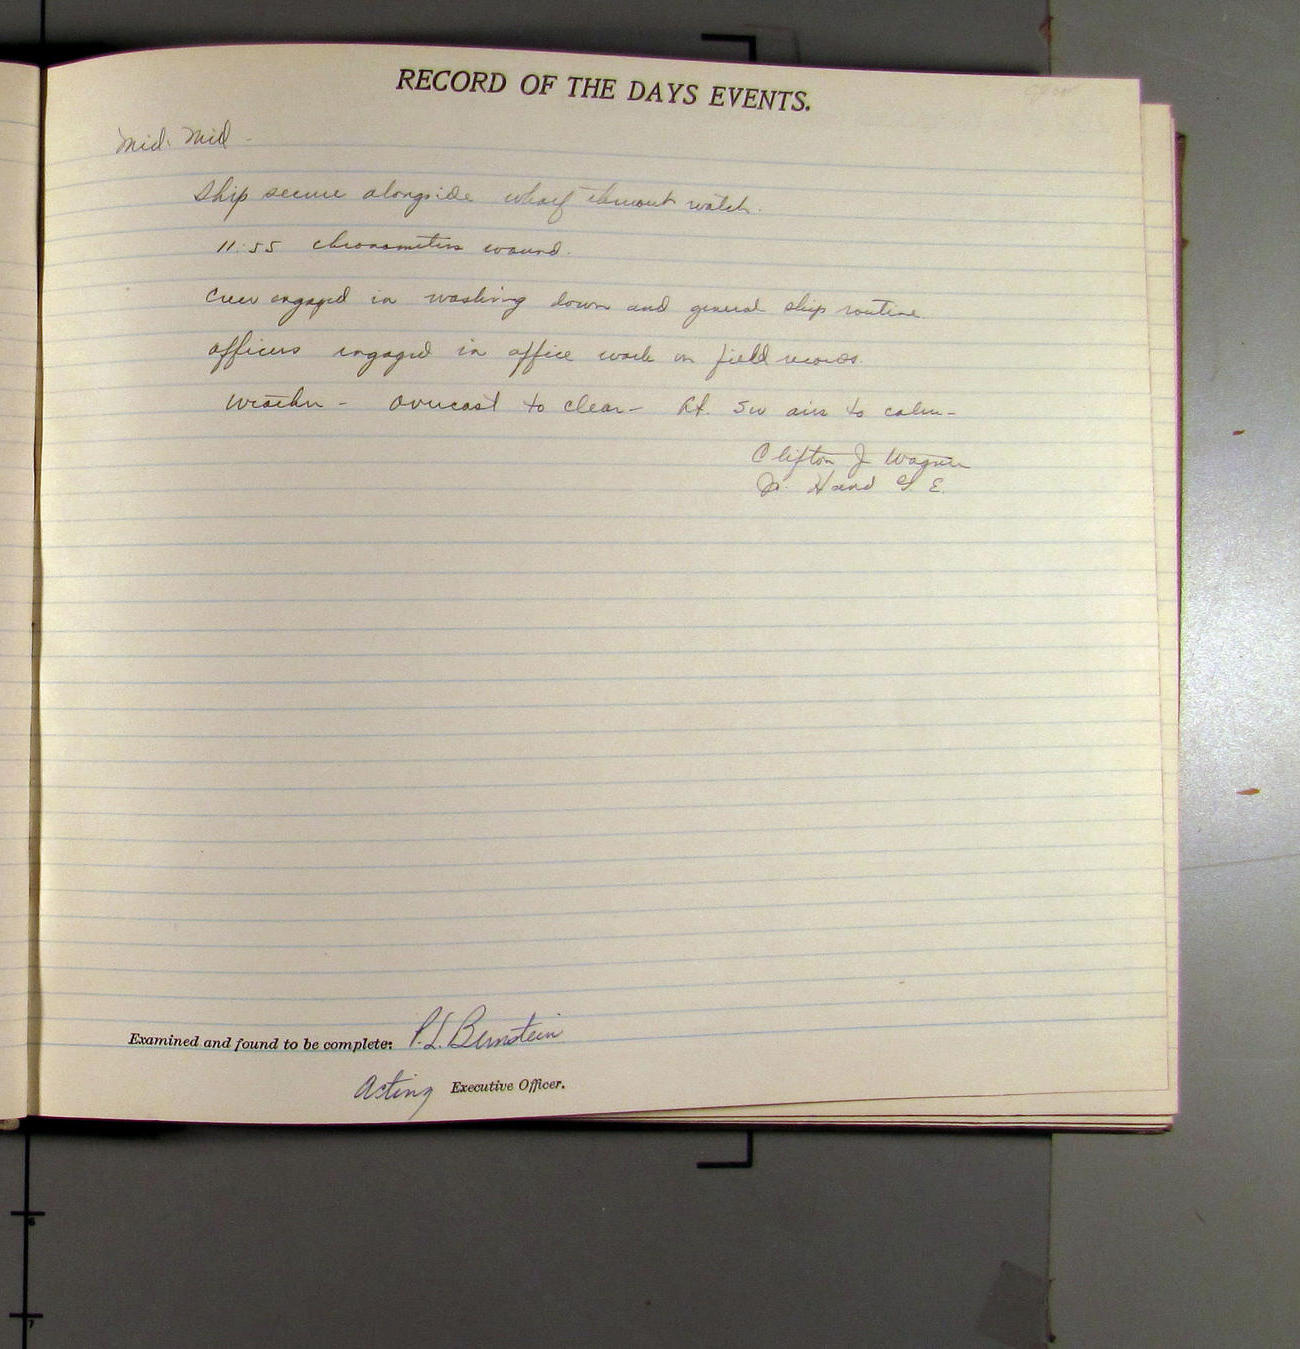 RECORD OF THE DAYS EVENTS.
Mid. Mid -
Ship secure alongside wharf thruout watch.
11:55 chronometers wound.
Crew engaged in washing down and general ship routine
Officers engaged in office work on field records.
Weather - Overcast to clear - Lt. SW airs to calm -
Clifton J Wagner
Jr. H and G E.
Examined and found to be complete: P.L. Bernstein
Acting Executive Officer.
6
7